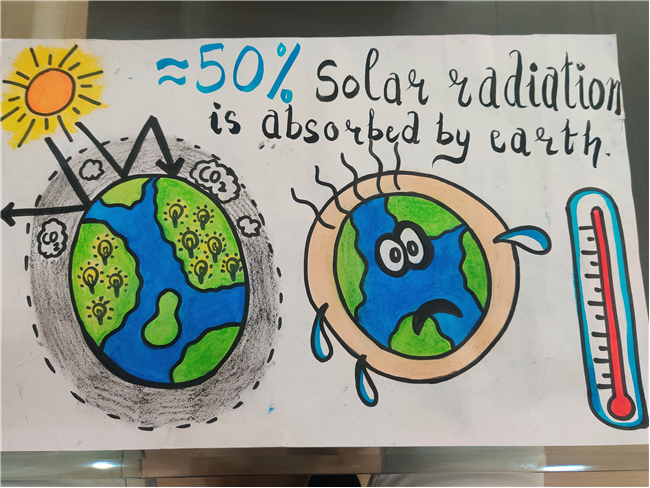 ≈50% Solar radiation
is absorbed by earth.
CO2
CO2